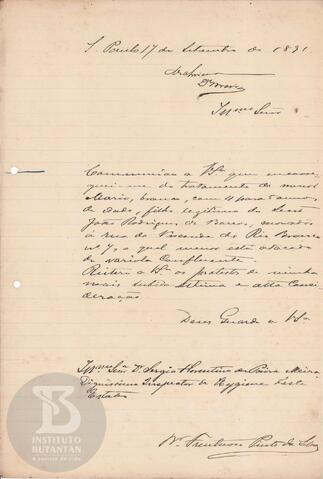 S. Paulo 17 de Setembro de 1891
Illmo Snr
Communico a V.Sa. que encarre-
guei-me do tratamento do menor
Mario, branco, com 4 para 5 annos
de edade, filho legitimo do Snr
João Rodrigues de Barros, morador
à rua do Visconde do Rio Branco
nº 7, o qual menor está atacado
de variola confluente.
Reitero a V.Sa. os protestos de minha
mais subida estima e alta consi-
deração
Deus Guarde a V.Sa.
Illmo Snr. Dr. Sergio Florentino de Paiva Meira
Dignissimo Inspector de Hygiene deste
Estado
Dr.
INSTITUTO
BUTANTAN
A serviço da vida